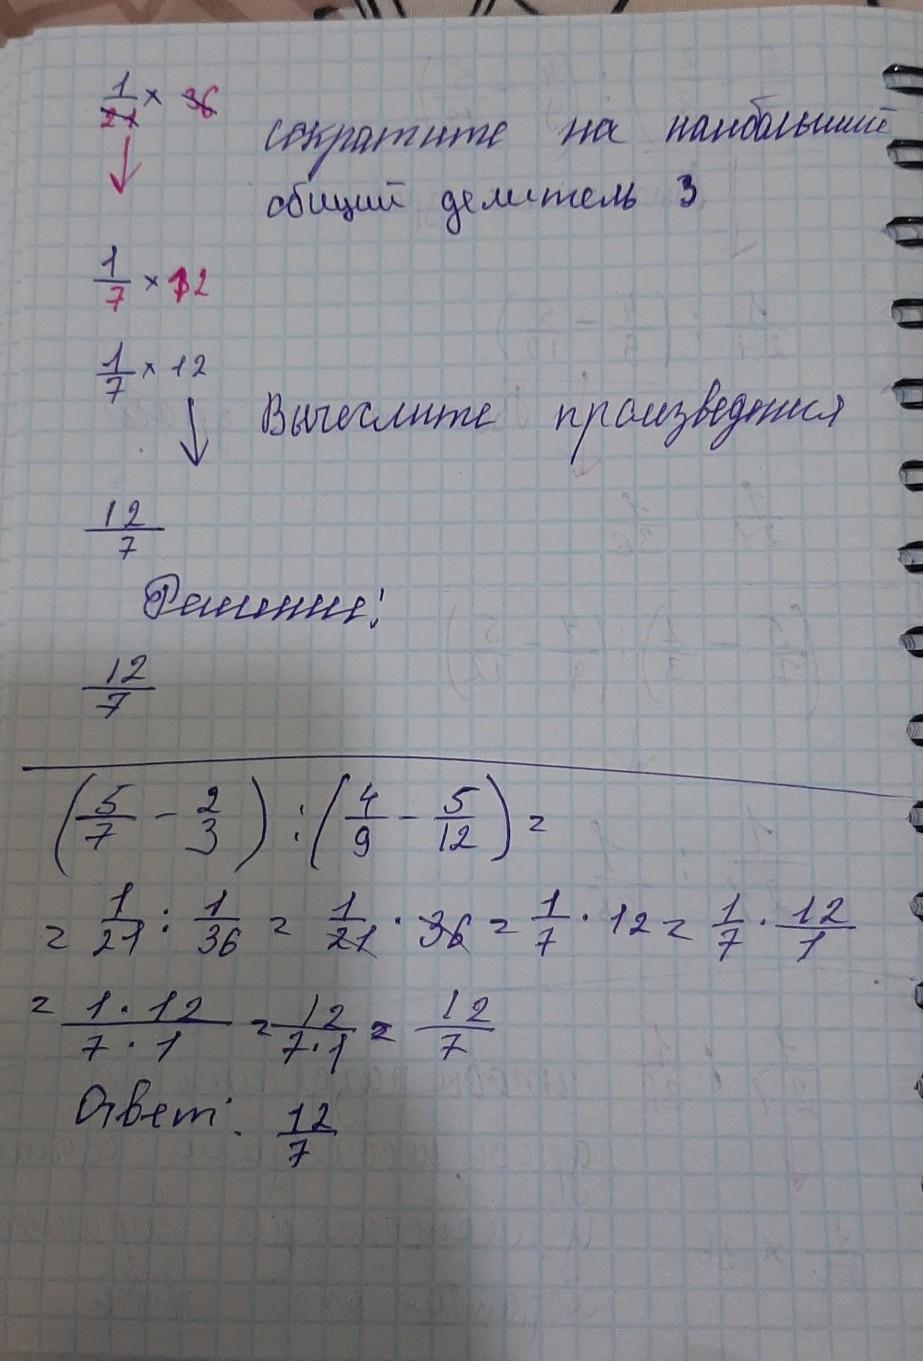 1/21 × 36
сократите на наибольший
общий делитель 3
1/7 × 12
1/7 × 12
Вычеслите произведения
12/7
Решение:
12/7
(5/7 - 2/3) : (4/9 - 5/12) =
= 1/21 : 1/36 = 1/21 · 36 = 1/7 · 12 = 1/7 · 12/1
= 1·12/7·1 = 12/7·1 = 12/7
Ответ: 12/7